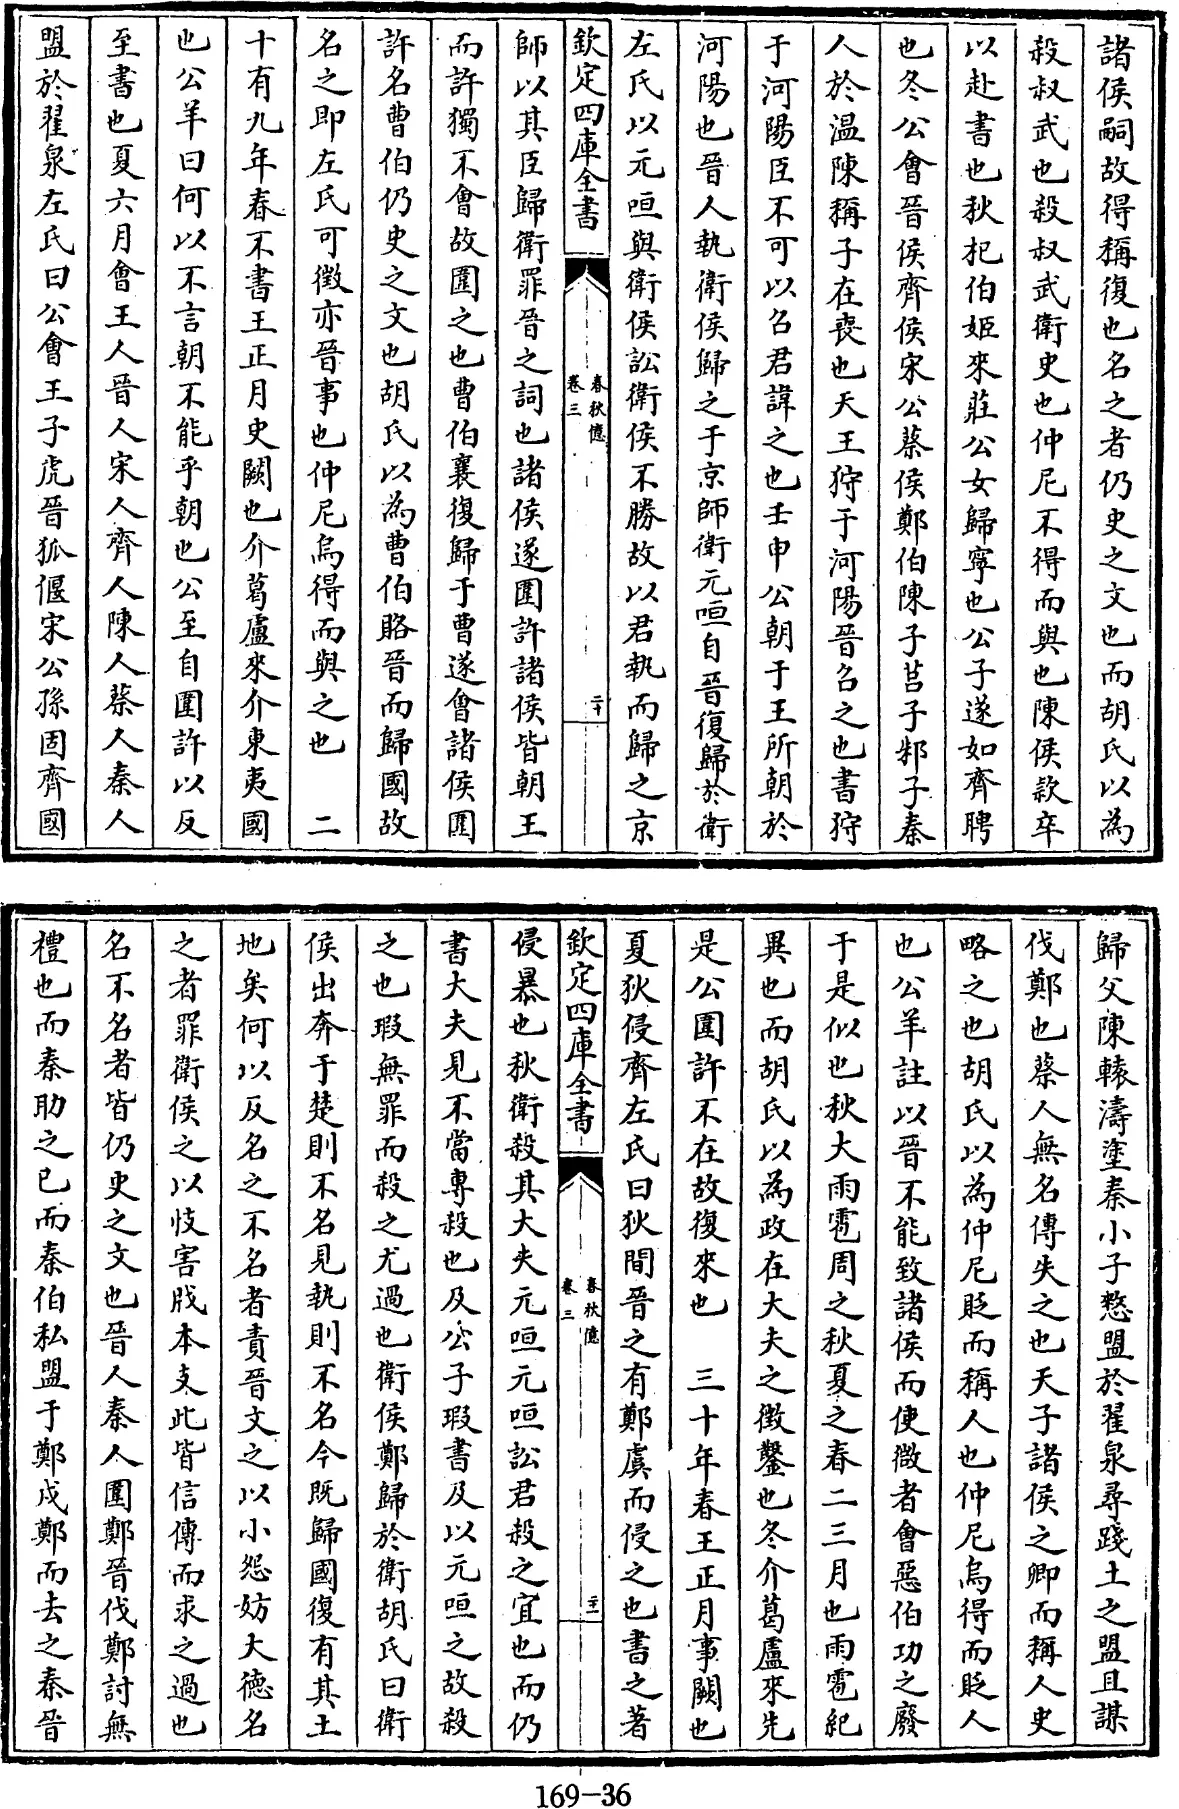 諸侯嗣故得稱復也名之者仍史之文也而胡氏以為
殺叔武也殺叔武衛史也仲尼不得而與也陳侯款卒
以赴書也秋杞伯姬來莊公女歸寧也公子遂如齊聘
也冬公會晉侯齊侯宋公蔡侯鄭伯陳子莒子邾子秦
人於溫陳稱子在喪也天王狩于河陽晉召之也書狩
于河陽臣不可以召君諱之也壬申公朝于王所朝於
河陽也晉人執衛侯歸之于京師衛元咺自晉復歸於衛
左氏以元咺與衛侯訟衛侯不勝故以君執而歸之京
欽定四庫全書
春秋億
卷三
二十
師以其臣歸衛罪晉之詞也諸侯遂圍許諸侯皆朝王
而許獨不會故圍之也曹伯襄復歸于曹遂會諸侯圍
許名曹伯仍史之文也胡氏以為曹伯賂晉而歸國故
名之即左氏可徵亦晉事也仲尼烏得而與之也 二
十有九年春不書王正月史闕也介葛盧來介東夷國
也公羊曰何以不言朝不能乎朝也公至自圍許以反
至書也夏六月會王人晉人宋人齊人陳人蔡人秦人
盟於翟泉左氏曰公會王子虎晉狐偃宋公孫固齊國
歸父陳轅濤塗秦小子憖盟於翟泉尋踐土之盟且謀
伐鄭也蔡人無名傳失之也天子諸侯之卿而稱人史
略之也胡氏以為仲尼貶而稱人也仲尼烏得而貶人
也公羊註以晉不能致諸侯而使微者會惡伯功之廢
于是似也秋大雨雹周之秋夏之春二三月也雨雹紀
異也而胡氏以為政在大夫之徵鑿也冬介葛盧來先
是公圍許不在故復來也 三十年春王正月事闕也
夏狄侵齊左氏曰狄間晉之有鄭虞而侵之也書之著
欽定四庫全書
春秋億
卷三
二十一
侵暴也秋衛殺其大夫元咺元咺訟君殺之宜也而仍
書大夫見不當專殺也及公子瑕書及以元咺之故殺
之也瑕無罪而殺之尤過也衛侯鄭歸於衛胡氏曰衛
侯出奔于楚則不名見執則不名今既歸國復有其土
地矣何以反名之不名者責晉文之以小怨妨大德名
之者罪衛侯之以忮害戕本支此皆信傳而求之過也
名不名者皆仍史之文也晉人秦人圍鄭晉伐鄭討無
禮也而秦助之已而秦伯私盟于鄭戍鄭而去之秦晉
169-36